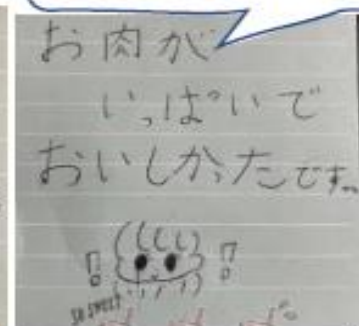 お肉が
いっぱいで
おいしかったです。
so sweet